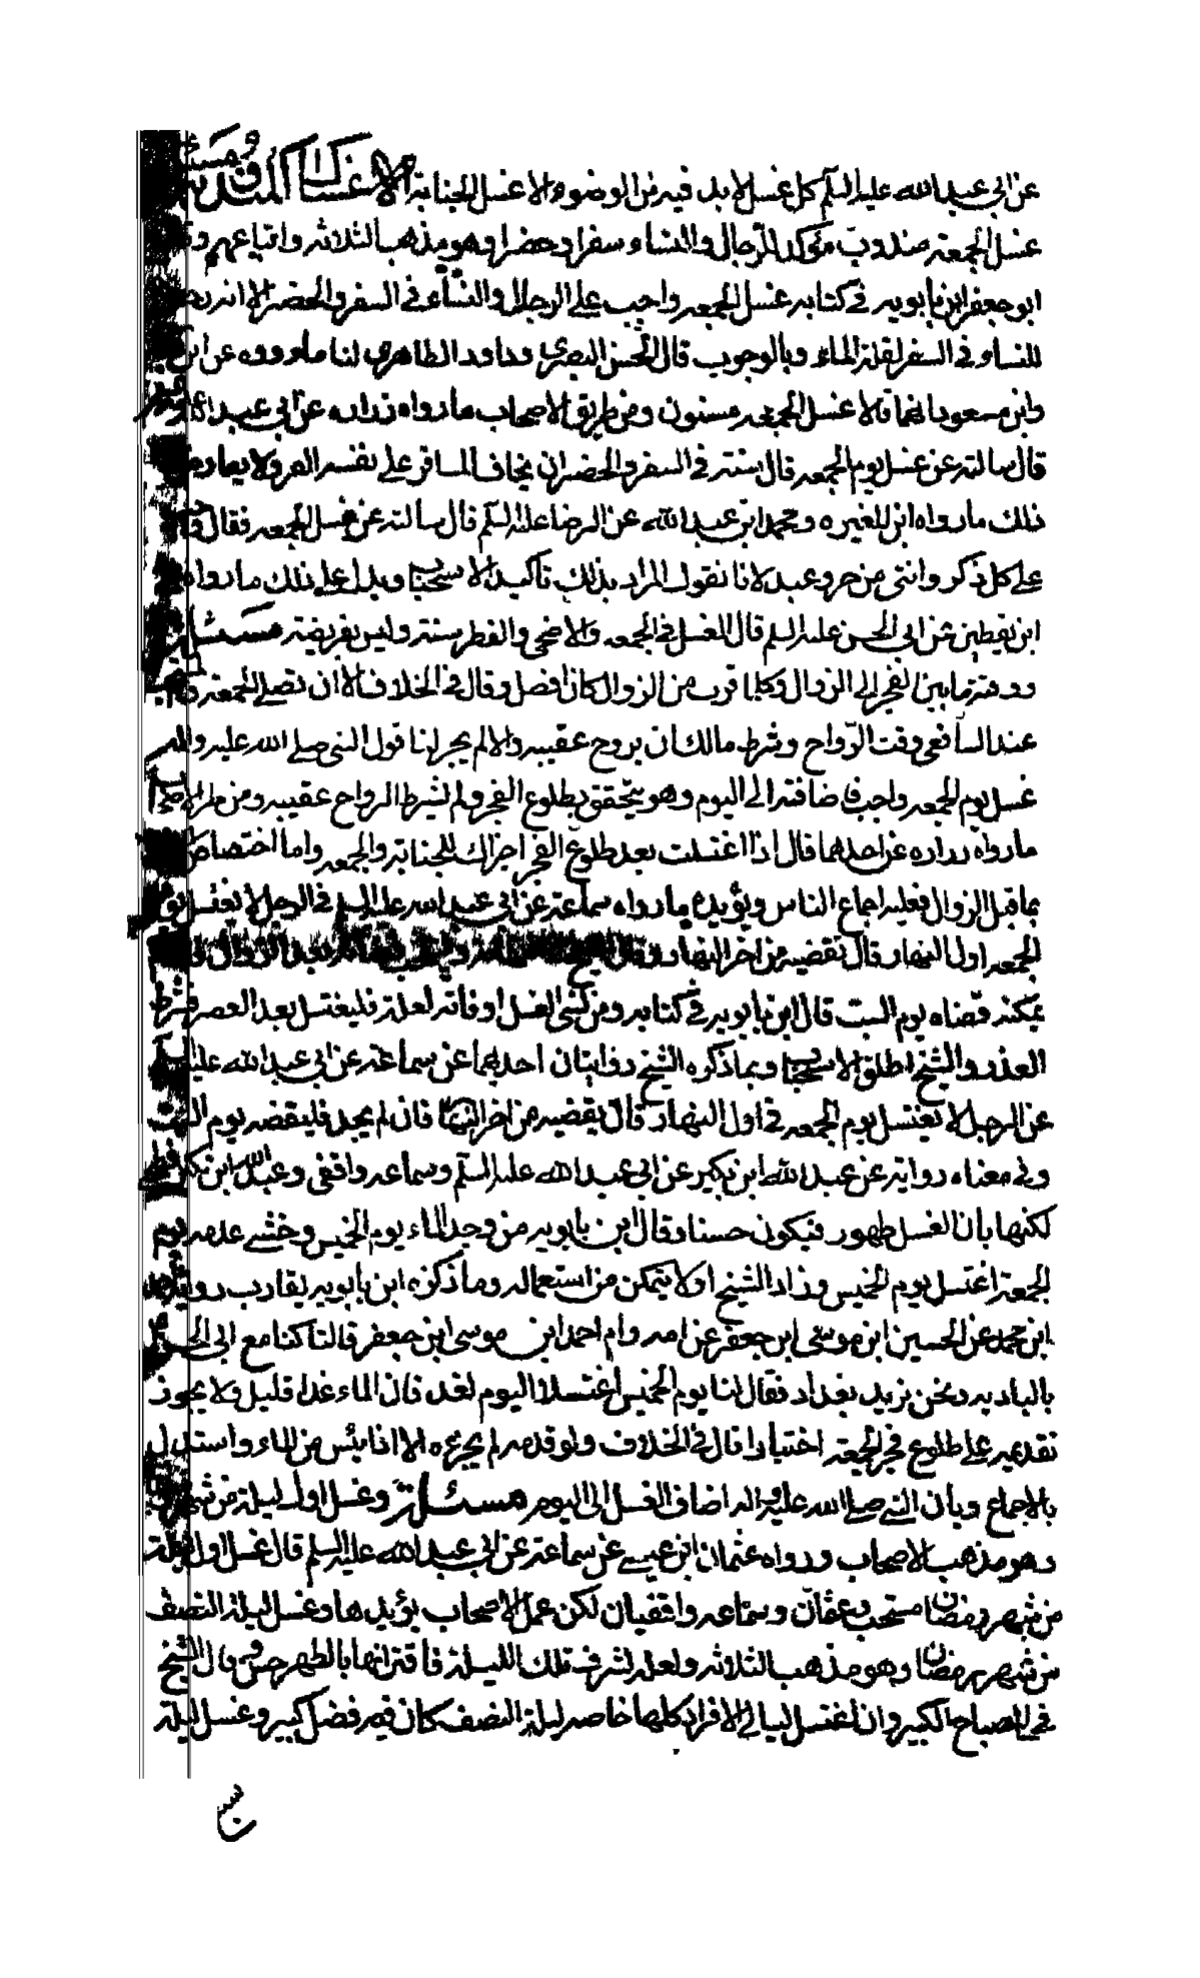 عن ابي عبد الله عليه السلم كل غسل لابد فيه من الوضوء الا غسل الجنابة الاغسال المندوبة
غسل الجمعة مندوب مؤكد للرجال والنساء سفرا وحضرا وهو مذهب الثلاثه واتباعهم
ابو جعفر ابن بابويه في كتابه غسل الجمعه واجب على الرجال والنساء في السفر والحضر الا انه
للنساء في السفر لقلة الماء وبالوجوب قال الحسن البصري وداود الظاهري لنا ما رووه عن ابن
وابن مسعود انهما قالا غسل الجمعه مسنون ومن طريق الاصحاب ما رواه زراره عن ابي عبد الله
قال سالته عن غسل يوم الجمعه قال سنة في السفر والحضر الا ان يخاف المسافر على نفسه القر ولا يعارض
ذلك ما رواه ابن المغيره ومحمد ابن عبد الله عن الرضا عليه السلم قال سالته عن غسل الجمعه فقال
على كل ذكر وانثى من حر وعبد لانا نقول المراد بذلك تاكيد الاستحباب ويدل على ذلك ما رواه
ابن يقطين عن ابي الحسن عليه السلم قال الغسل في الجمعه والاضحى والفطر سنة وليس بفريضة مسئلة
ووقته ما بين الفجر الى الزوال وكلما قرب من الزوال كان افضل وقال في الخلاف الا ان تصلى الجمعة
عند الشافعي وقت الرواح وشرط مالك ان يروح عقيبه والا لم يجز لنا قول النبي صلى الله عليه واله
غسل يوم الجمعه واجب فاضافته الى اليوم وهو يتحقق بطلوع الفجر ولم يشرط الرواح عقيبه ومن طريق الاصحاب
ما رواه زراره عن احدهما قال اذا اغتسلت بعد طلوع الفجر اجزاك للجنابة والجمعه واما اختصاص
بما قبل الزوال فعليه اجماع الناس ويؤيده ما رواه سماعة عن ابي عبد الله عليه السلم في الرجل لا يغتسل يوم
الجمعه اول النهار قال تقضيه من اخر النهار وقال الشيخ بعد الزوال
يمكنه قضاه يوم السبت قال ابن بابويه في كتابه ومن نسي الغسل او فاته لعلة فليغتسل بعد العصر فشرط
العذر والشيخ اطلق الاستحباب وبما ذكره الشيخ روايتان احدهما عن سماعة عن ابي عبد الله عليه السلم
عن الرجل لا يغتسل يوم الجمعه في اول النهار قال يقضيه من اخر النهار فان لم يجد فليقضه يوم السبت
وفي معناه رواية عن عبد الله ابن بكير عن ابي عبد الله عليه السلم وسماعه واقفي وعبد الله ابن بكير فطحي
لكنها بان الغسل طهور فيكون حسنا وقال ابن بابويه من وجد الماء يوم الخميس وخشي عدمه يوم
الجمعة اغتسل يوم الخميس وزاد الشيخ او لا يتمكن من استعماله وما ذكره ابن بابويه يقارب رواية
ابن محمد عن الحسين ابن موسى ابن جعفر عن امه وام احمد ابن موسى ابن جعفر قالتا كنا مع ابي الحسن
بالباديه ونحن نريد بغداد فقال لنا يوم الخميس اغتسلا اليوم لغد فان الماء غدا قليل ولا يجوز
تقديمه على طلوع فجر الجمعة اختيارا قال في الخلاف ولو قدمه لم يجزءه الا اذا يئس من الماء واستدل
بالاجماع وبان النبي صلى الله عليه واله اضاف الغسل الى اليوم مسئلة وغسل اول ليلة من شهر
وهو مذهب الاصحاب ورواه عثمان ابن عيسى عن سماعة عن ابي عبد الله عليه السلم قال غسل اول ليلة
من شهر رمضان مستحب وعثمان وسماعه واقفيان لكن عمل الاصحاب يؤيدها وغسل ليلة النصف
من شهر رمضان وهو مذهب الثلاثه ولعله لشرف تلك الليلة فاقترانها بالطهر حسن وقال الشيخ
في المصباح الكبير وان اغتسل ليالي الافراد كلها خاصه ليلة النصف كان فيه فضل كبير وغسل ليلة